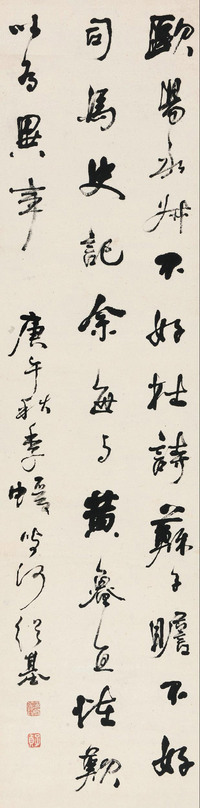 歐陽永叔不好杜詩蘇子瞻不好
司馬史記余每與黃魯直怪歎
以為異事
庚午秋季蝯叟何紹基